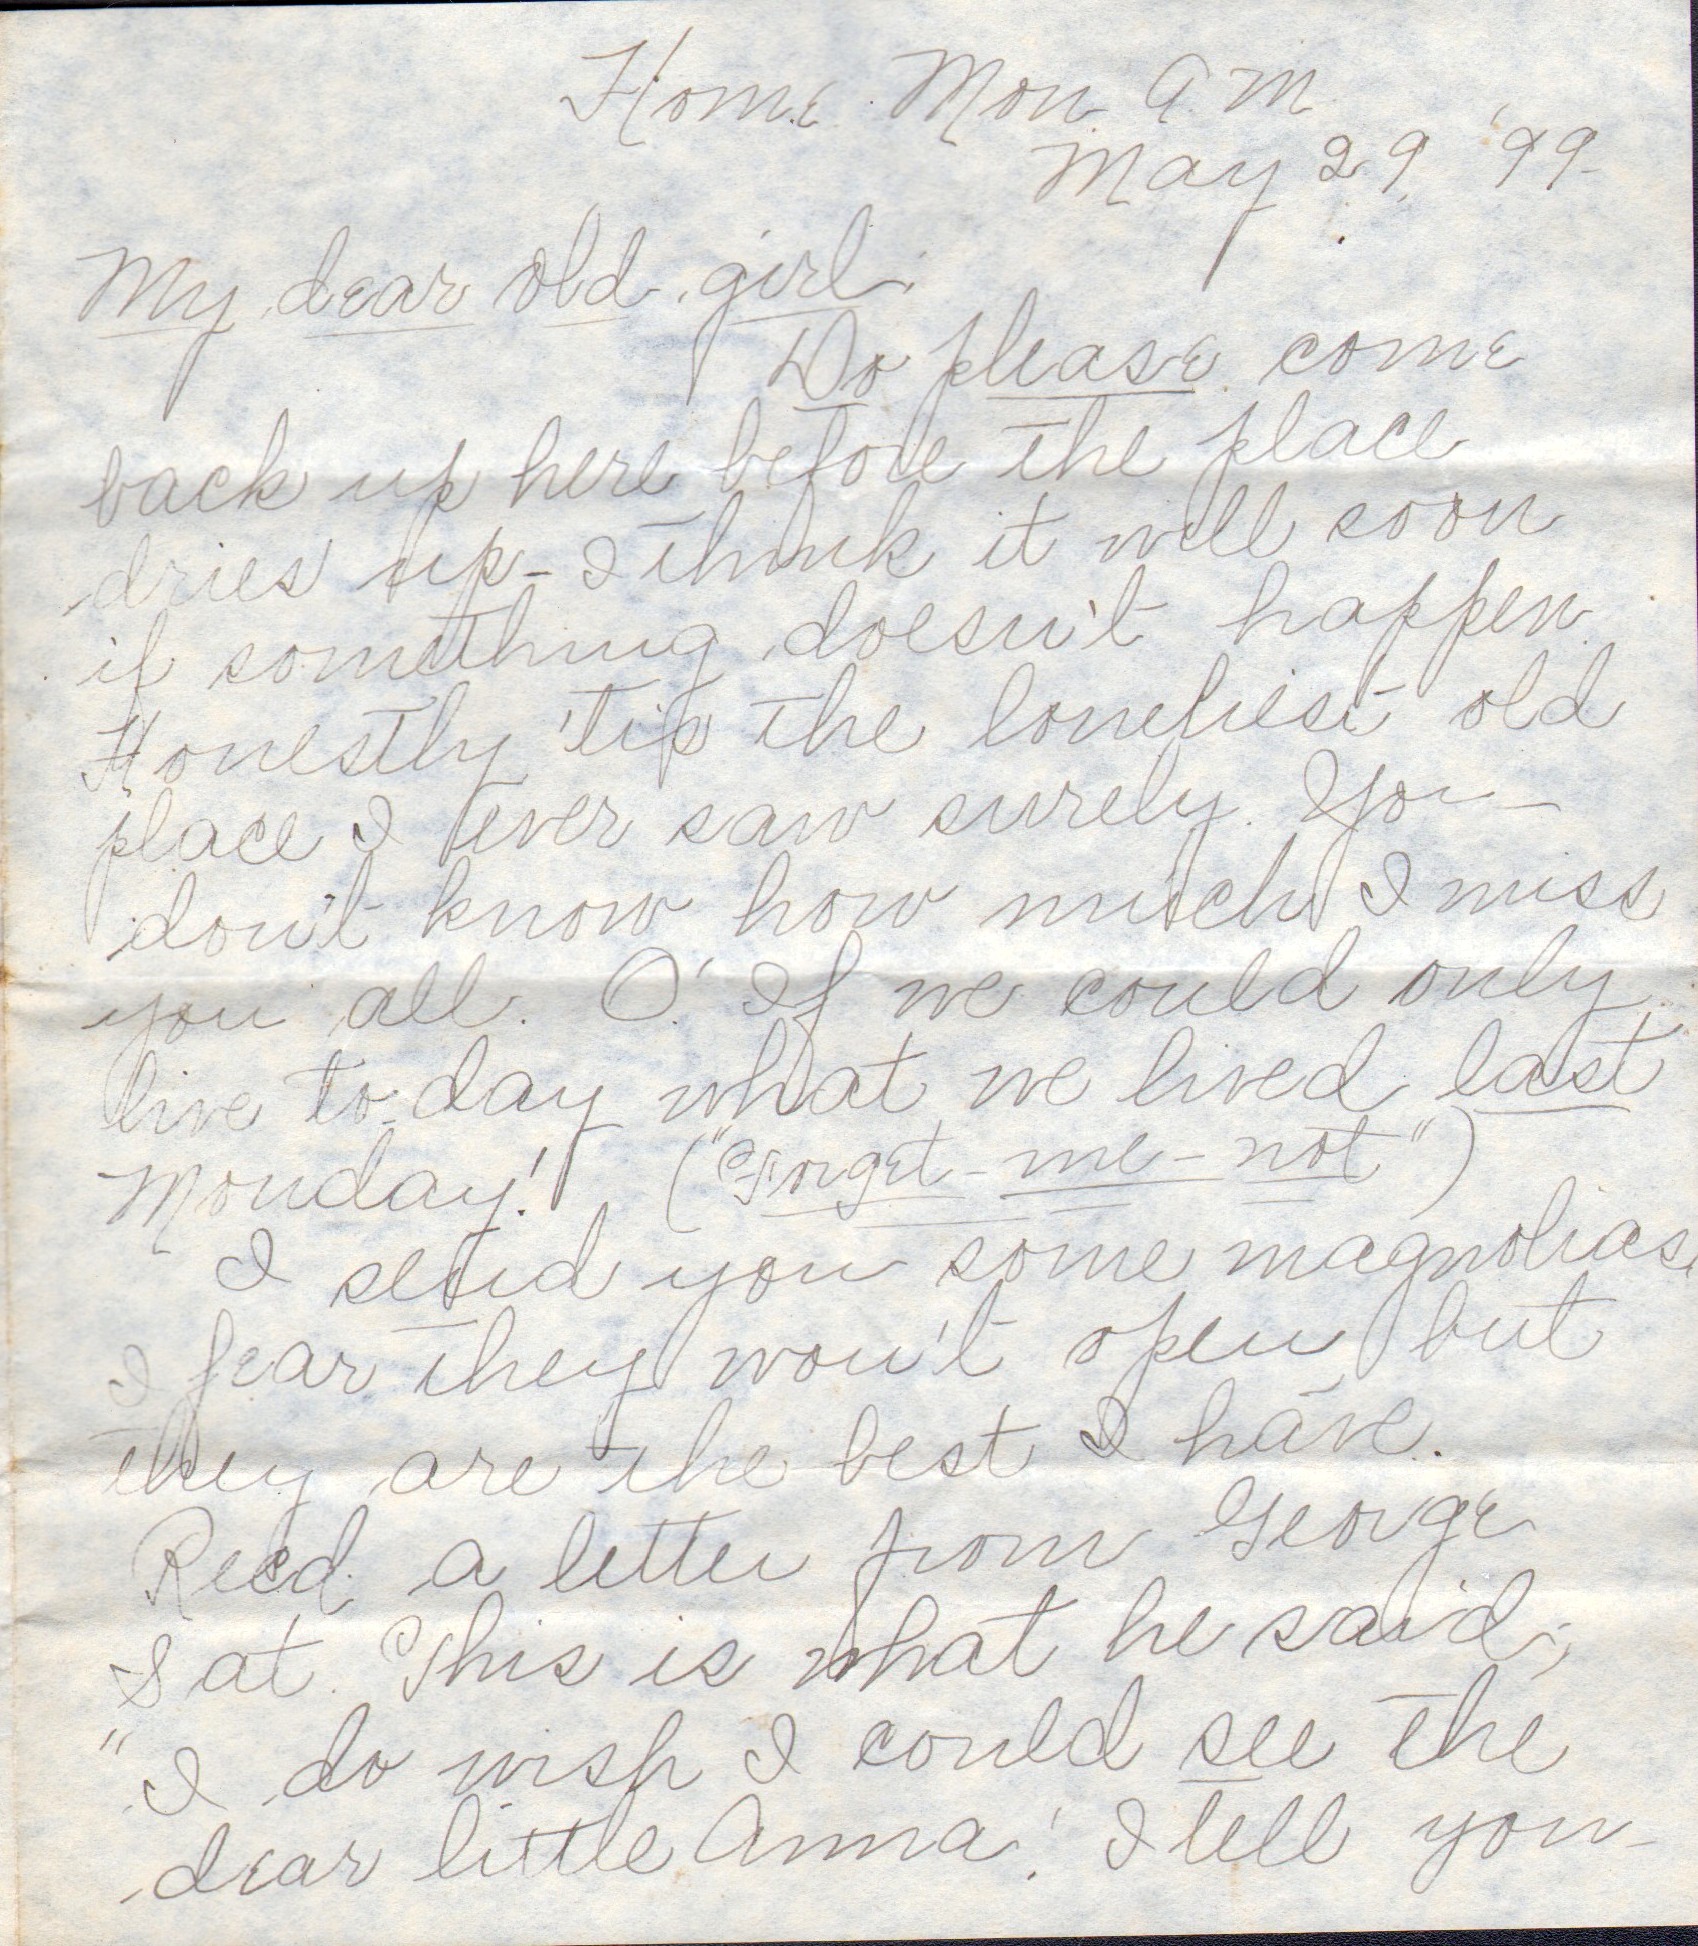 Home Mon A M
May 29, '99-
My dear old girl.
Do please come
back up here before the place
dries up - I think it will soon
if something doesn't happen.
Honestly 'tis the loneliest old
place I ever saw surely. You -
don't know how much I miss
you all. O! If we could only
live to-day what we lived last
Monday! ("Forget-me-not")
I send you some magnolias.
I fear they won't open but
they are the best I have.
Recd. a letter from George
Sat. This is what he said;
"I do wish I could see the
dear little Anna! I tell you